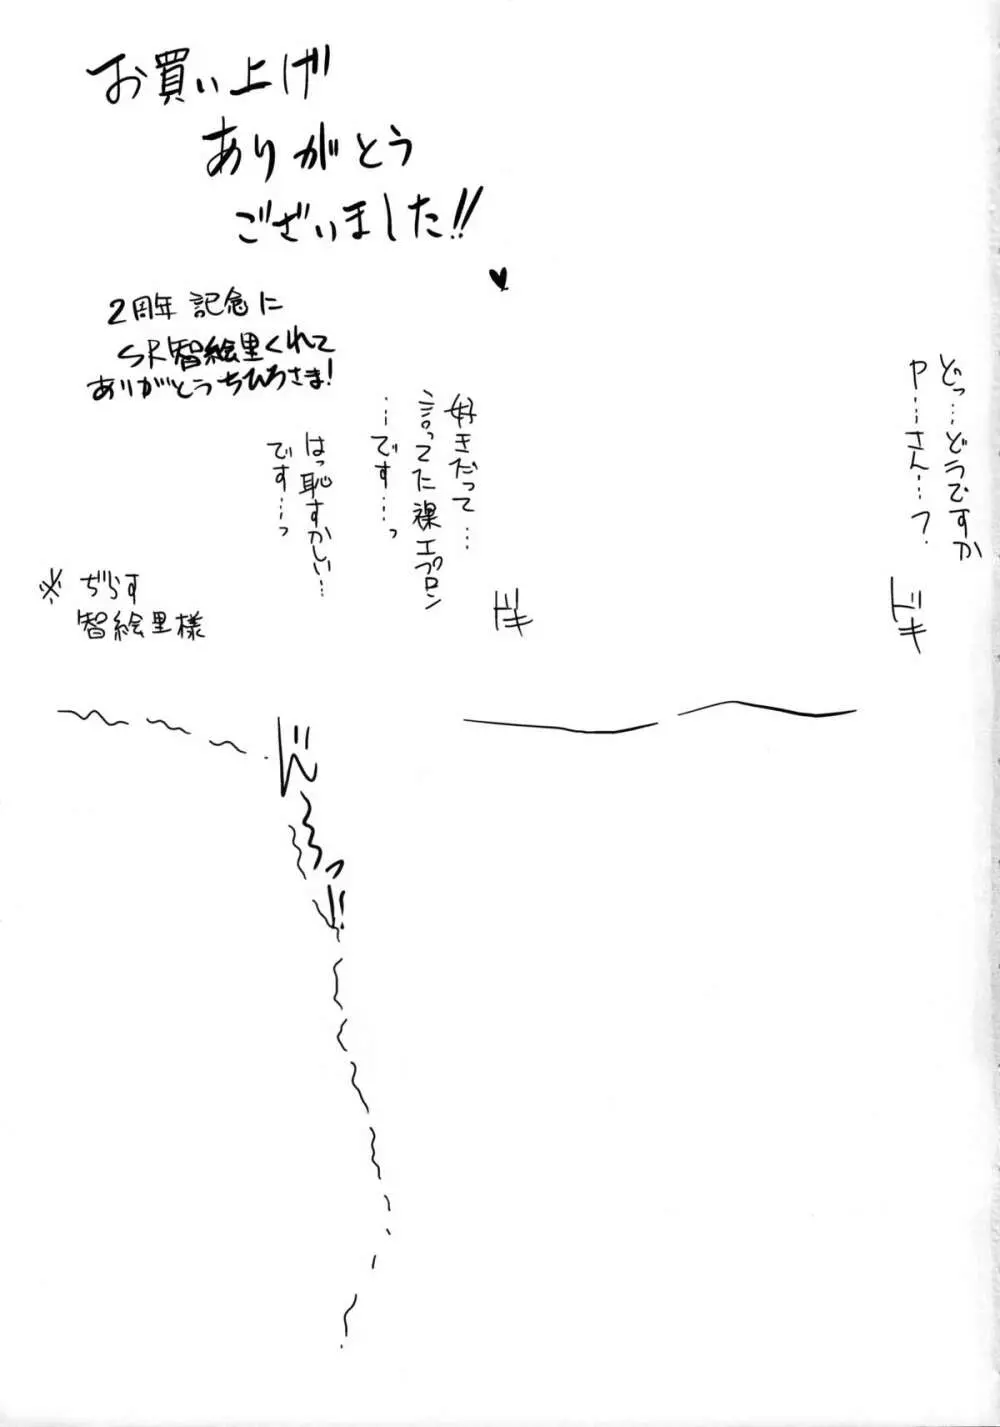 お買い上げ
ありがとう
ございました!!
2周年 記念に
SR智絵里くれて
ありがとうちひろさま!
どっ…どうですか
P…さん…?
ドキ
好きだって…
言ってた裸エプロン
…です…っ
ドキ
はっ恥ずかしい…
です…っ
※ ぢらす
智絵里様